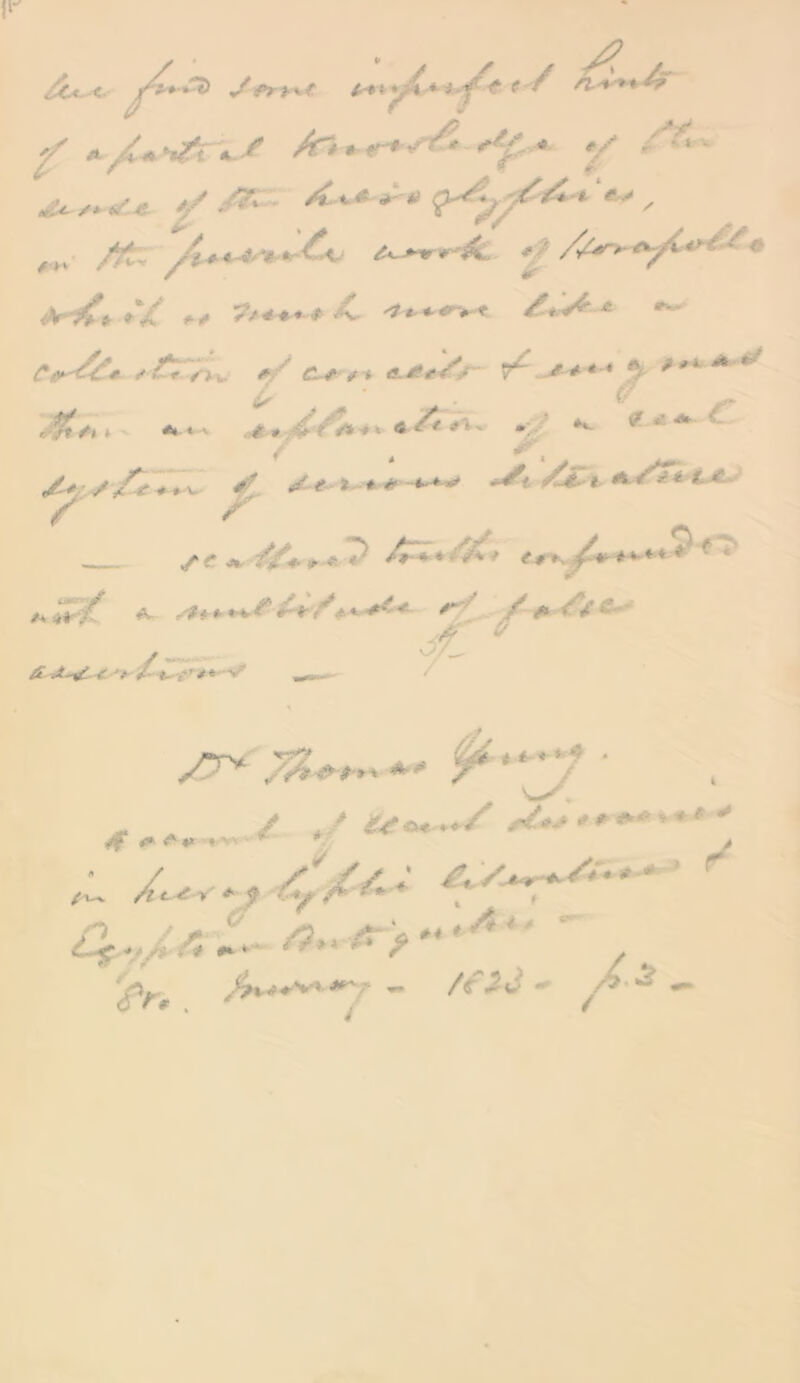 We find some imperfect hints
of a partial knowledge of the
sense of the hieroglyphics,
in the puerile work of Horapollo
which is much more like a
collection of conceits & enigmas
than an explanation of a real
system of serious literature
— scattered truths confounded
with a multitude of false
assertions —
Dr Thomas Young.
Account of recent discoveries
in hieroglyphic literature &
Egyptian Antiquities —
8vo. Murray - 1823 - p.3 -